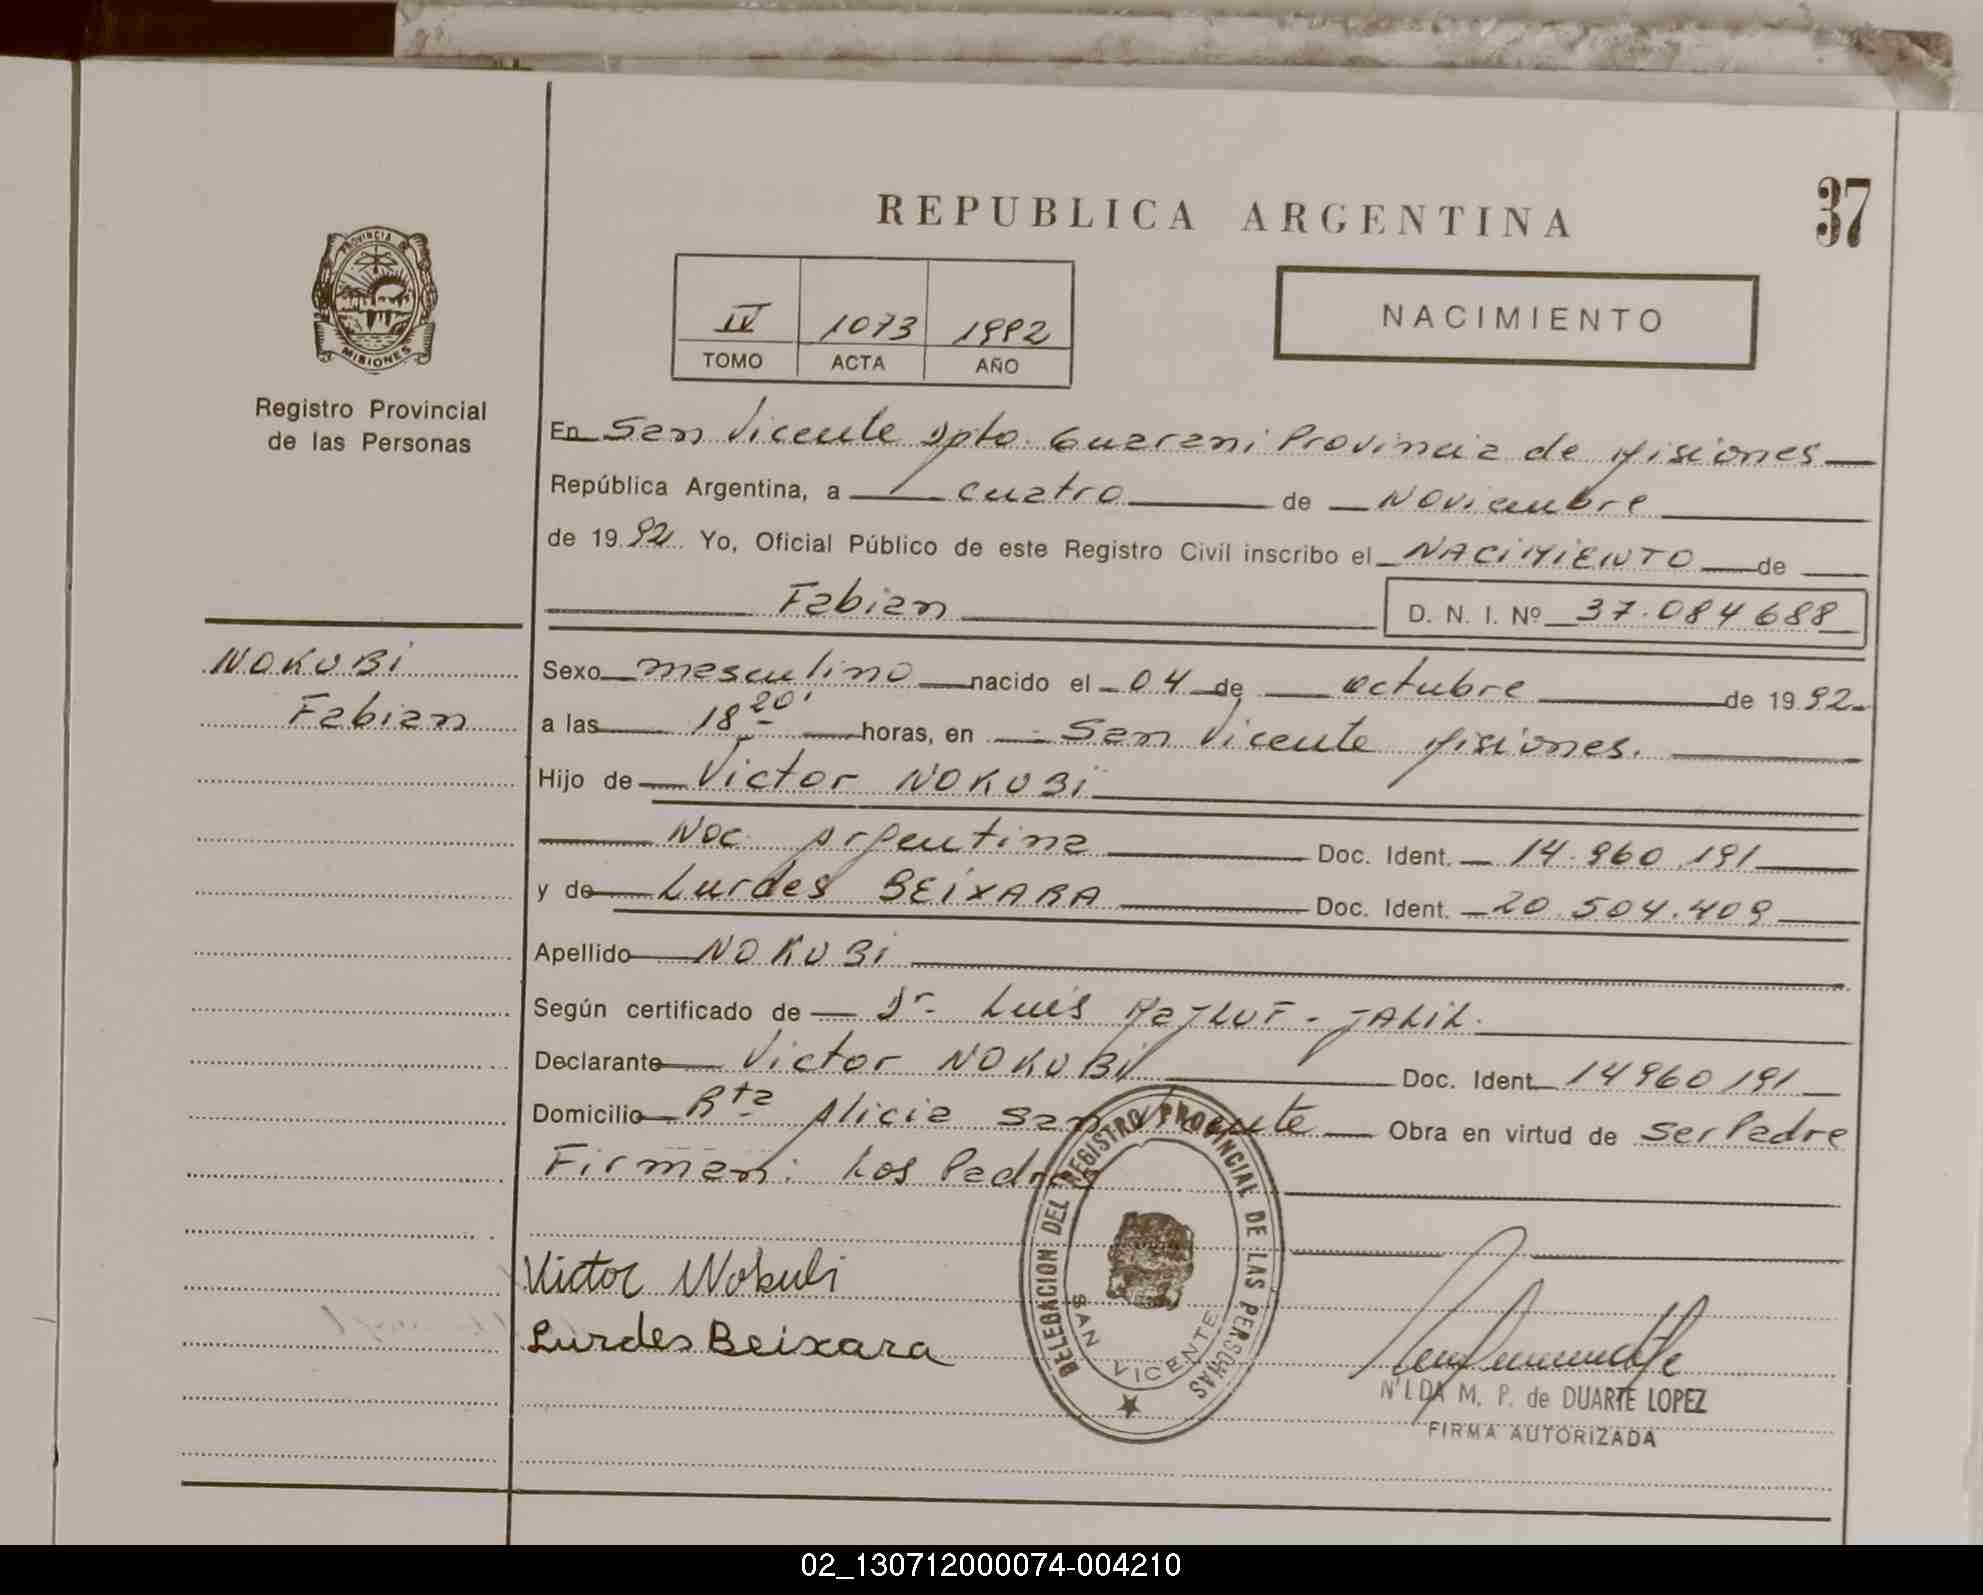 REPUBLICA ARGENTINA
37
PROVINCIA DE
MISIONES
Registro Provincial
de las Personas
IV 1073 1992
TOMO ACTA AÑO
NACIMIENTO
En San Vicente Dpto. Guarani Provincia de Misiones
República Argentina, a cuatro de Noviembre
de 1992 Yo, Oficial Público de este Registro Civil inscribo el NACIMIENTO de
Fabian D. N. I. Nº 37.084688
NOKUBI
Fabian
Sexo masculino nacido el 04 de octubre de 1992
a las 18 20' horas, en San Vicente Misiones.
Hijo de Victor NOKUBI
Nac. Argentina Doc. Ident. 14.960.191
y de Lurdes BEIXARA Doc. Ident. 20.504.409
Apellido NOKUBI
Según certificado de Dr. Luis JALIL.
Declarante Victor NOKUBI Doc. Ident. 14960191
Domicilio Rta Alicia San Vicente Obra en virtud de ser Padre
Firman: Los Padres
Victor Nokubi
Lurdes Beixara
DELEGACION DEL REGISTRO PROVINCIAL DE LAS PERSONAS
SAN VICENTE
NILDA M. P. de DUARTE LOPEZ
FIRMA AUTORIZADA
02_130712000074-004210